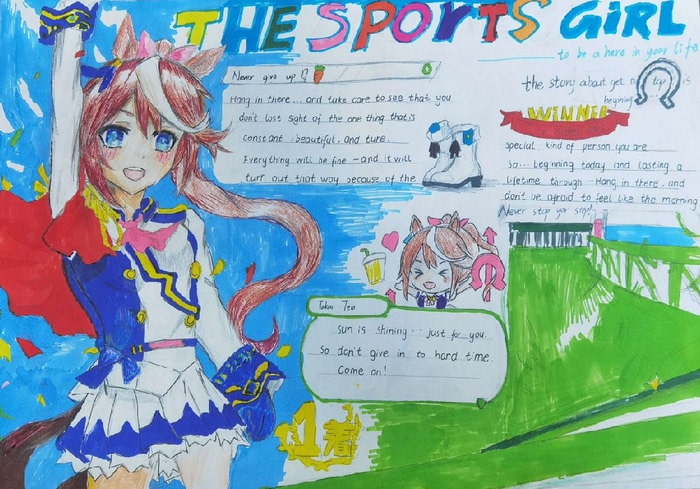 THE SPORTS GIRL
to be a here in your life
Never give up!
Hang in there...and take care to see that you
don't lost sight of the one thing that is
constant beautiful. And ture.
Everything will be fine - and it will
turt out that way because of the
the story about get
begining
WINNER
special kind of person you are
So... beginning today and lasting a
lifetime through. Hang in there. and
don't be afraid to feel like the morning
Never stop your step!
Tokai Teo
sun is shining... just for you.
So don't give in to hard time.
Come on!
1着